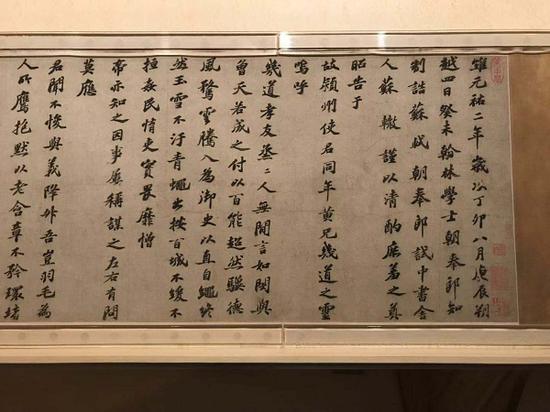 維元祐二年歲次丁卯八月庚辰朔
越四日癸未翰林學士朝奉郎知
制誥蘇軾朝奉郎試中書舍
人蘇轍謹以清酌庶羞之奠
昭告于
故潁州使君同年黃兄幾道之靈
嗚呼
幾道孝友烝〻人無間言如閔與
曾天若成之付以百能超然驥德
風騖雲騰入為御史以直自繩終
然玉雪不汙青蠅出按百城不緩不
姦民惰吏實畏靡憎
帝亦知之因事屢稱謀之左右有問
莫應
君聞不悛與義降升吾豈羽毛為
人所鷹抱默以老含章不矜環堵